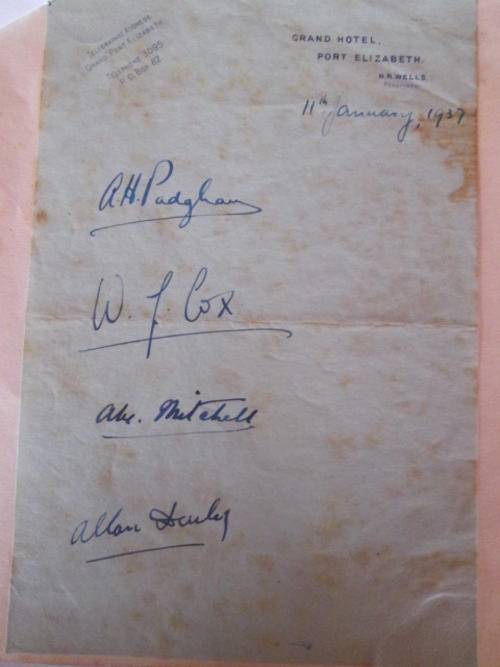 TELEGRAPHIC ADDRESS
"GRAND" PORT ELIZABETH.
TELEPHONE 3095
P.O. BOX 82
GRAND HOTEL,
PORT ELIZABETH.
N.R. WELLS
PROPRIETOR
11th January, 1937
A.H. Padgham
W. J. Cox
Abe. Mitchell
Allan